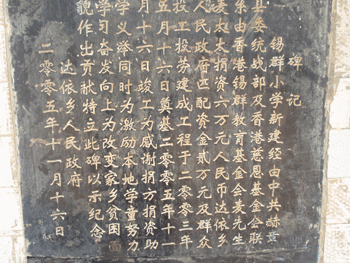 碑记
锡群小学新建经由中共赫章
县委统战部及香港慈恩基金会联
系由香港锡群教育基金会麦先生
麦太太捐资六万元人民币达依乡
人民政府匹配资金贰万元及群众
投工投劳建成工程于二零零三年
五月十六日奠基二零零五年十一
月十六日竣工为感谢捐方捐资助
学义举同时为激励本地学童努力
学习奋发向上为改变家乡贫困面
貌作出贡献特立此碑以示纪念
达依乡人民政府
二零零五年十一月十六日